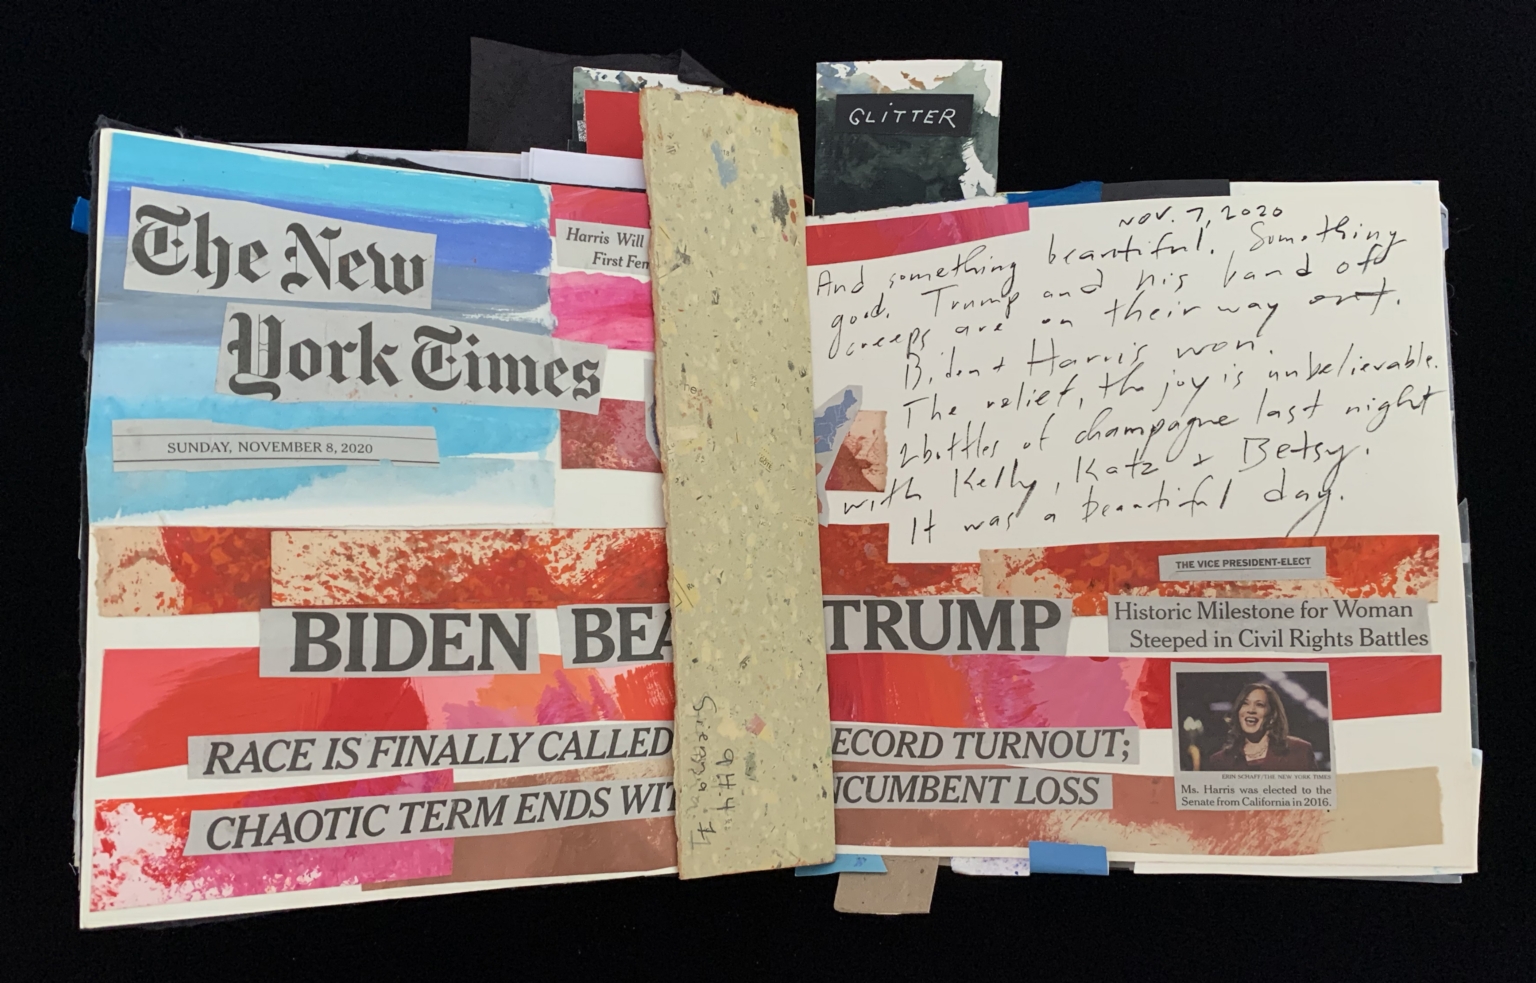 GLITTER
The New
York Times
SUNDAY, NOVEMBER 8, 2020
Harris Will
First Fem
NOV. 7, 2020
And something beautiful. Something
good. Trump and his band of
creeps are on their way out.
Biden + Harris won.
The relief, the joy is unbelievable.
2 bottles of champagne last night
with Kelly, Katz + Betsy.
It was a beautiful day.
THE VICE PRESIDENT-ELECT
BIDEN BEA TRUMP
Historic Milestone for Woman
Steeped in Civil Rights Battles
RACE IS FINALLY CALLED ECORD TURNOUT;
CHAOTIC TERM ENDS WIT NCUMBENT LOSS
ERIN SCHAFF/THE NEW YORK TIMES
Ms. Harris was elected to the
Senate from California in 2016.